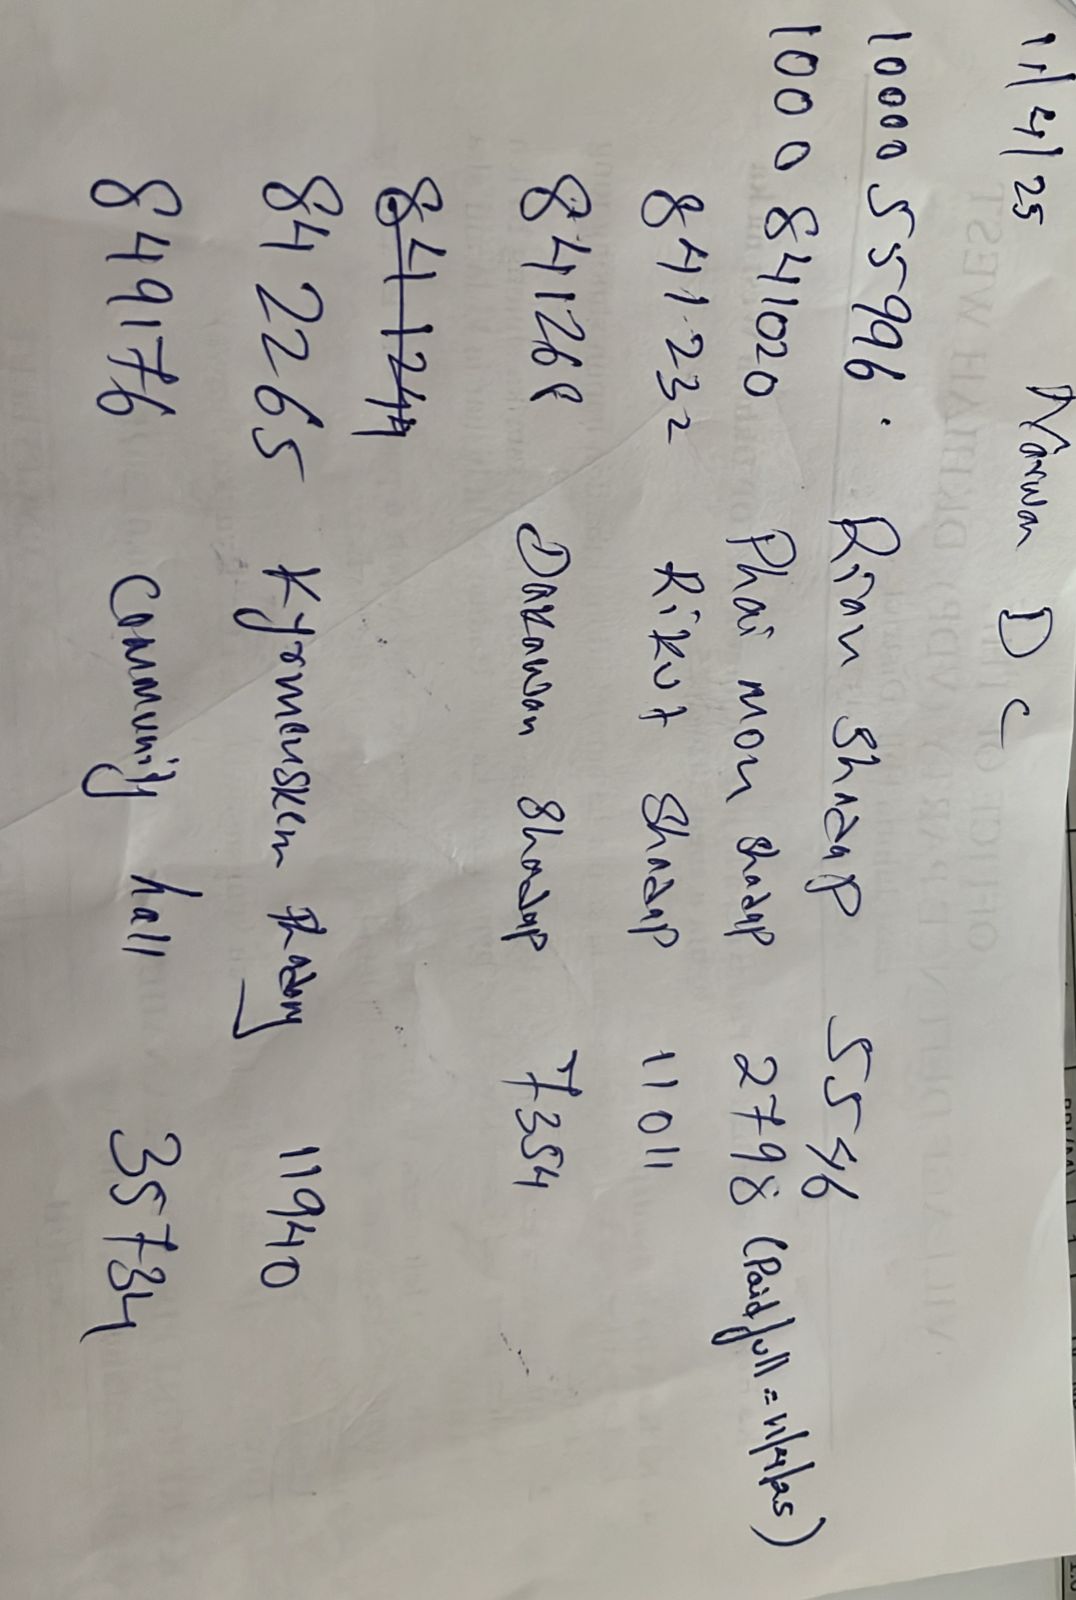 11/4/25 Narwan D C
10000 55996. Rian Shadap 5546
1000 841020 Phai mon shadap 2798 (Paid full = 11/4/25)
841232 Rikut Shadap 11011
841268 Dakawan Shadap 7354
841244
842265 Kyrmenskem 11940
849176 Community hall 35734